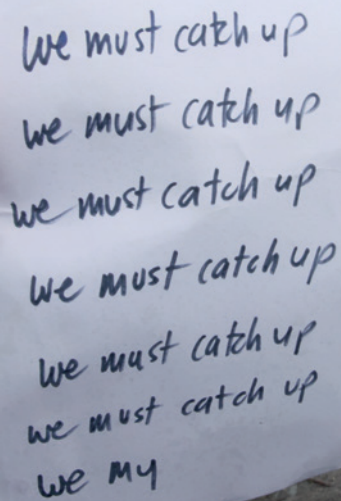 we must catch up
we must catch up
we must catch up
we must catch up
we must catch up
we must catch up
we my